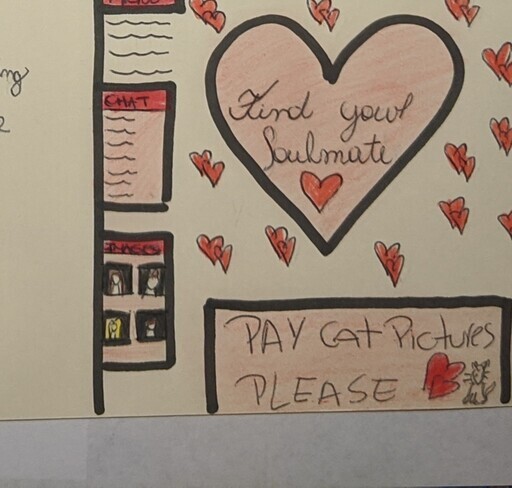 CHAT
Find your
Soulmate
PAY Cat Pictures
PLEASE